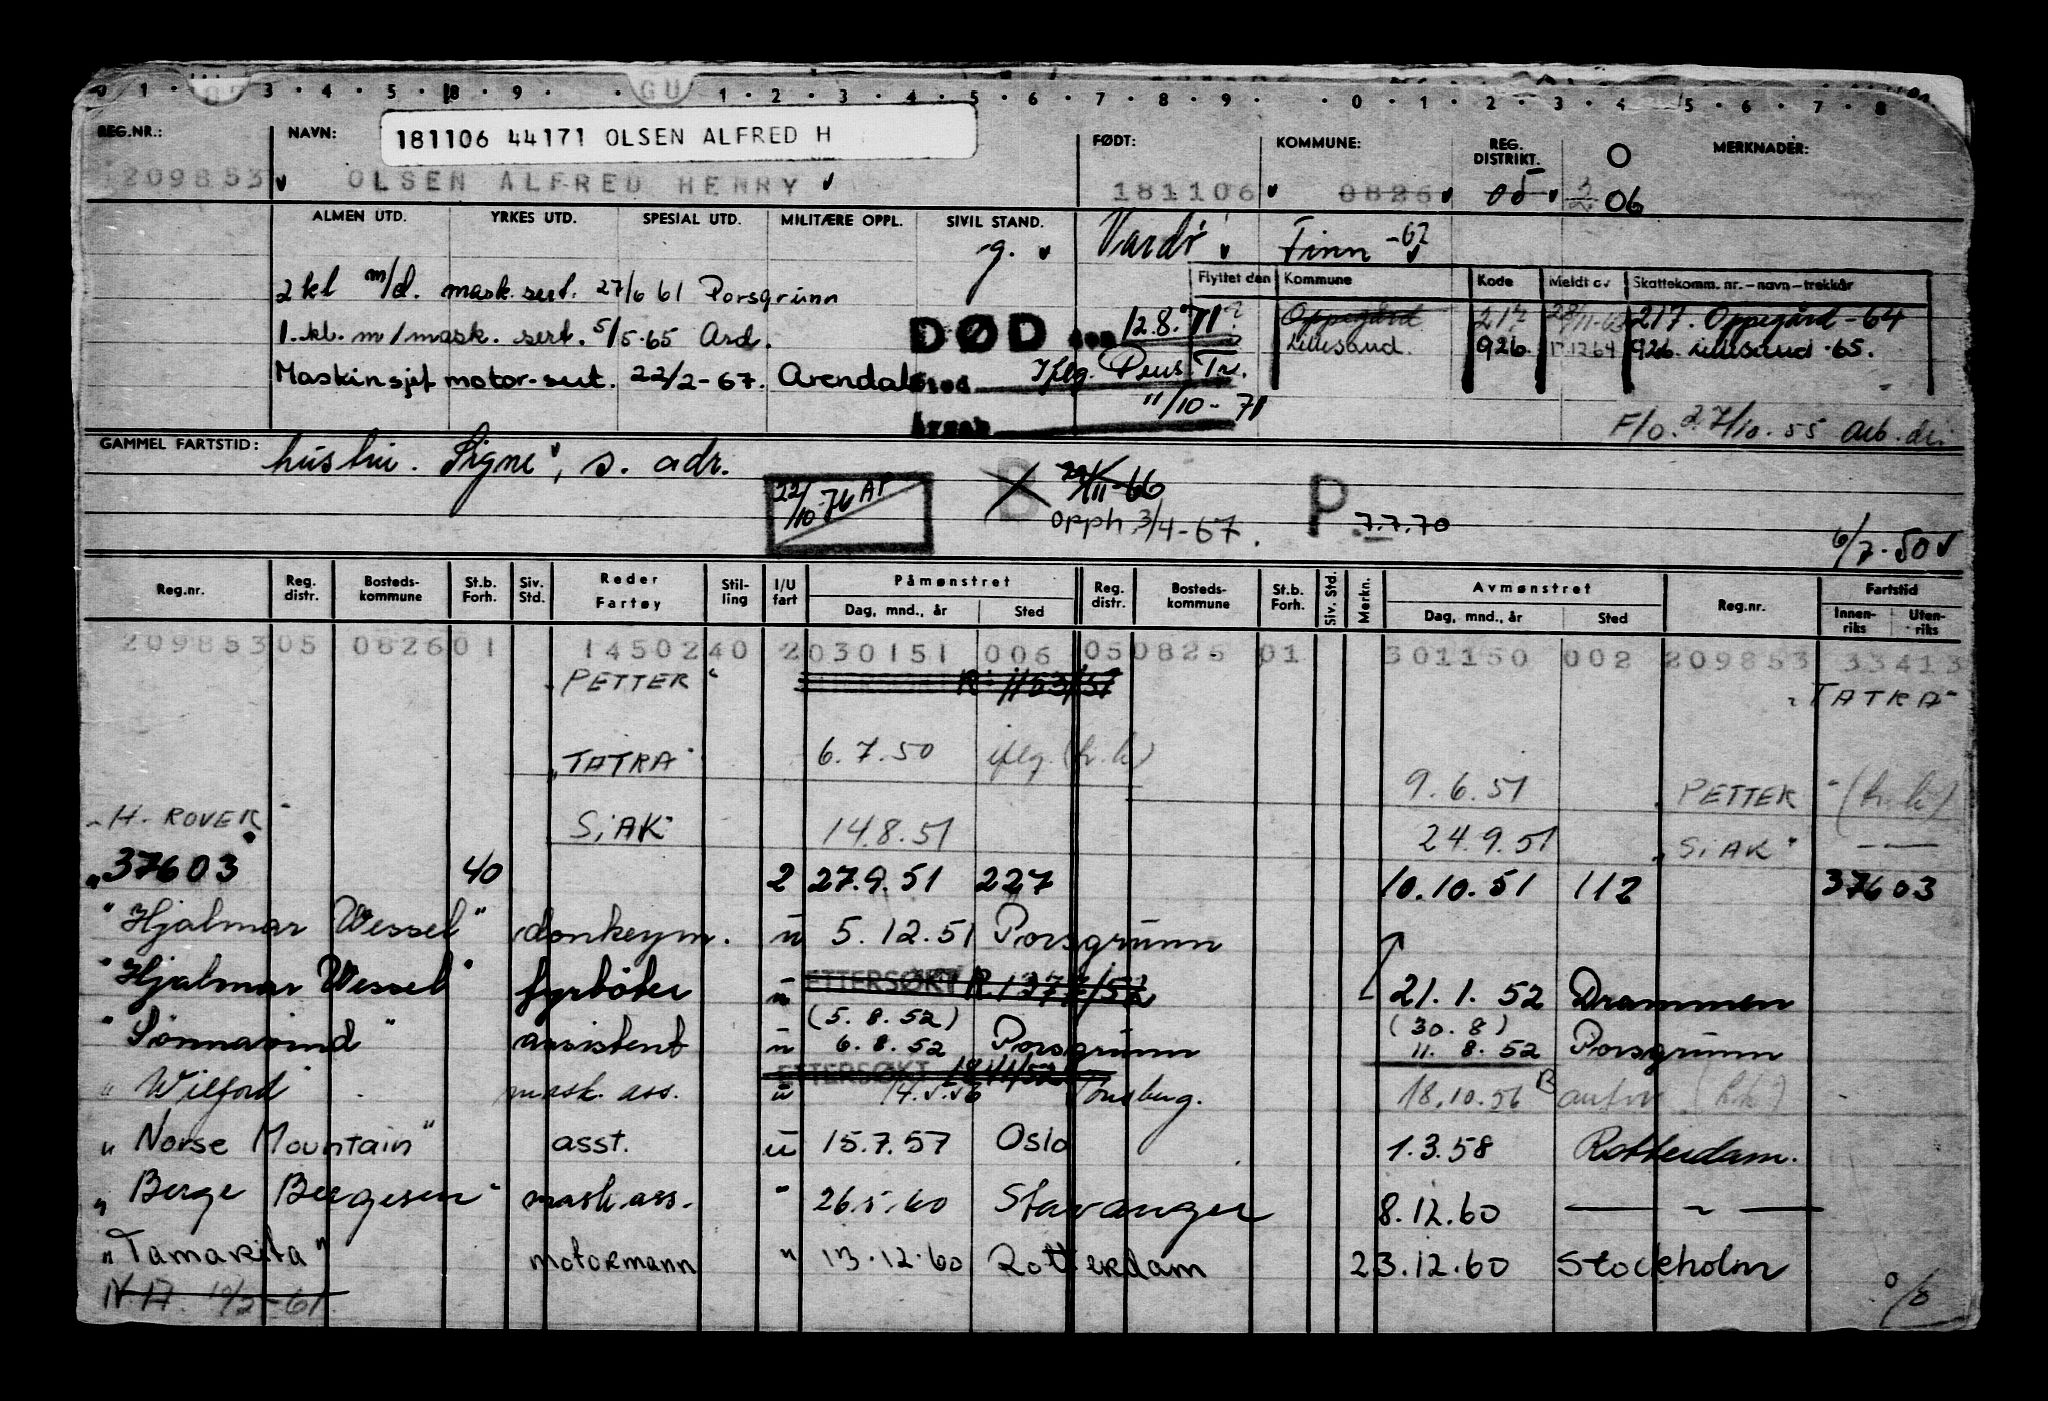 0 · 1 · 3 · 4 · 5 · 8 · 9 · GU 1 · 2 · 3 · 4 · 5 · 6 · 7 · 8 · 9 · 0 · 1 · 2 · 3 · 4 · 5 · 6 · 7 · 8
REG.NR.: NAVN: 181106 44171 OLSEN ALFRED H FØDT: KOMMUNE: REG. DISTRIKT. O MERKNADER:
209853 OLSEN ALFRED HENRY 181106 0826 05 06
ALMEN UTD. YRKES UTD. SPESIAL UTD. MILITÆRE OPPL. SIVIL STAND.
g. Vardø Finn -67
Flyttet den Kommune Kode Meldt av Skattekomm. nr. – navn – trekkår
2 kl m/d. mask. sert. 27/6 61 Porsgrunn
Oppegård 217 217. Oppegård - 64
1. kl. m/mask. sert. 5/5-65 Ard. DØD den 12.8.71
Lillesand. 926 17.12 64 926 Lillesand -65.
Maskinsjef motor-sert. 22/2-67. Arendal
Sted Iflg. Pens. Tr.
Årsak 11/10-71
F/o. 27/10.55 Arb. dir.
GAMMEL FARTSTID: hustru. Signe, s. adr.
22/10-76 AP B 22/11-66 opph. 3/4-67. P 7.7.70
6/7.50
Reg.nr. Reg. distr. Bosteds-kommune St.b. Forh. Siv. Std. Reder Fartøy Stil-ling I/U fart Påmønstret Dag, mnd., år Sted Reg. distr. Bosteds-kommune St.b. Forh. Siv. Std. Merkn. Avmønstret Dag, mnd., år Sted Reg.nr. Fartstid Innen-riks Uten-riks
209853 05 0826 01 1450240 2 030151 006 05 0826 01 301150 002 209853 33413
"PETTER" R. 1153/51 "TATRA"
"TATRA" 6.7.50 iflg. (h.k) 9.6.51 "PETTER" (h.k)
"H. ROVER" "SIAK" 14.8.51 24.9.51 "SIAK" —
"37603 40 2 27.9.51 227 10.10.51 112 37603
"Hjalmar Wessel" donkeym. u 5.12.51 Porsgrunn
"Hjalmar Wessel" fyrbøter u ETTERSØKT R. 1377/52 21.1.52 Drammen
(5.8.52) (30.8)
"Sønnavind" assistent u 6.8.52 Porsgrunn 11.8.52 Porsgrunn
ETTERSØKT
"Wilford" mask. ass. u 14.5.56 Tønsberg. 18.10.56 B (h.k)
"Norse Mountain" asst. u 15.7.57 Oslo 1.3.58 Rotterdam.
"Berge Bergesen" mask. ass. " 26.5.60 Stavanger 8.12.60 — " —
"Tamarita" motormann " 13.12.60 Rotterdam 23.12.60 Stockholm
N.A. 10/2-61. %